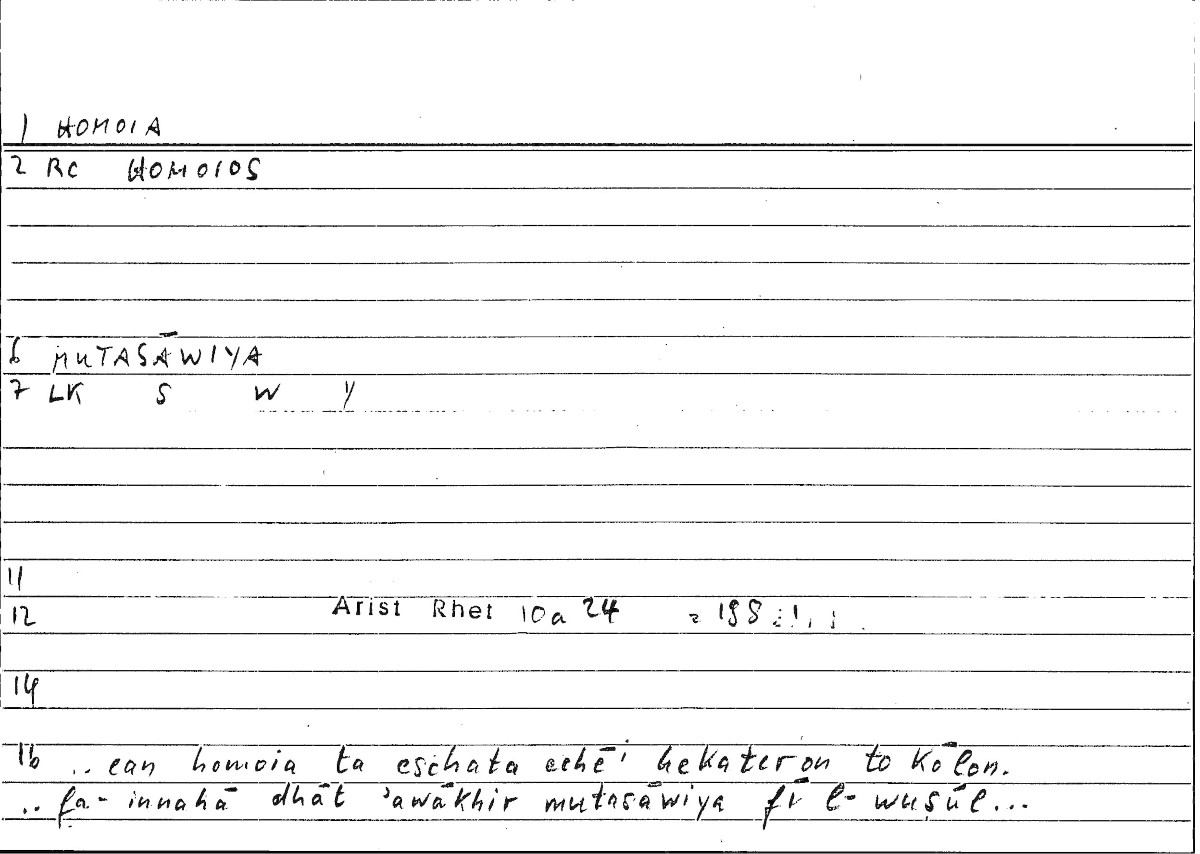 1 HOMOIA
2 RC HOMOIOS
6 MUTASĀWIYA
7 LK S W Y
11
12 Arist Rhet 10a 24 = 198
14
16 .. ean homoia ta eschata echē' hekateron to kōlon.
.. fa-innahā dhāt 'awākhir mutasāwiya fī l-wuṣūl...